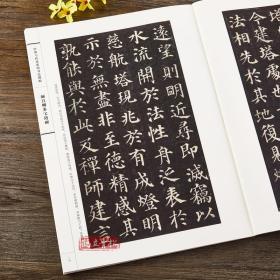 今建塔
法相先於其地
遠望則明近尋即滅竊以
水流開於法性舟泛表於
慈航塔現兆於有成燈明
示於無盡非至德精感其
孰能與於此及禪師建言
顏真卿多寶塔碑